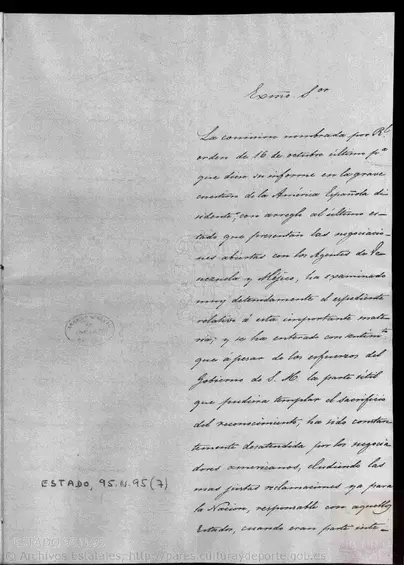 Exmo Sor
La comision nombrada por Rl
orden de 16 de octubre último pa
que diese su informe en la grave
cuestion de la América Española di-
sidente, con arreglo al último es-
tado que presentan las negociacio-
nes abiertas con los Agentes de Ve-
nezuela y Méjico, ha examinado
muy detenidamente el espediente
relativo á esta importante mate-
ria; y se ha enterado con sentimto
que á pesar de los esfuerzos del
Gobierno de S. M. la parte útil
que pudiera templar el sacrificio
del reconocimiento, ha sido constan-
temente desatendida por los negocia-
dores americanos, eludiendo las
mas justas reclamaciones ya para
la Nacion, responsable con aquellos
Estados, cuando eran parte inte-
ESTADO, 95.N.95(7)
© Archivos Estatales, http://pares.culturaydeporte.gob.es